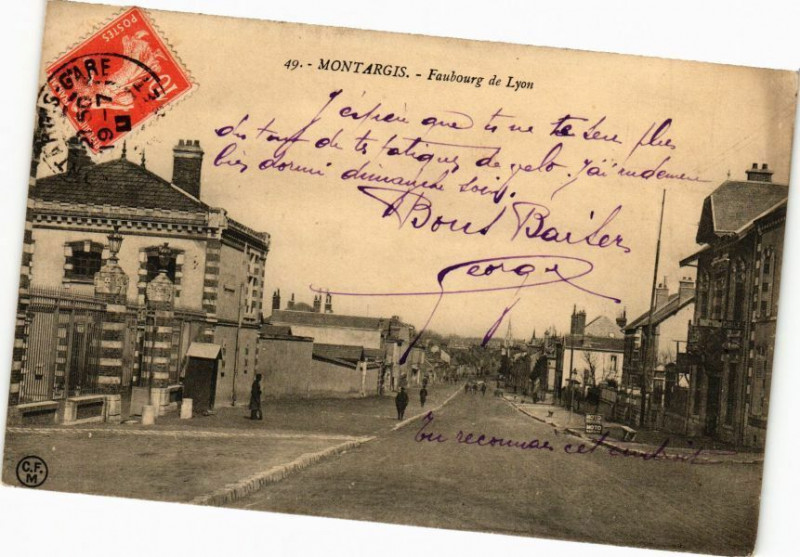 49. - MONTARGIS. - Faubourg de Lyon
POSTES
10
GARE
J'espère que tu ne te sens plus
du tout de tes fatigues de velo. J'ai
bien dormi dimanche soir.
Bons Baisers
Georges
Tu reconnais cet endroit
MOTO
C.F.
M